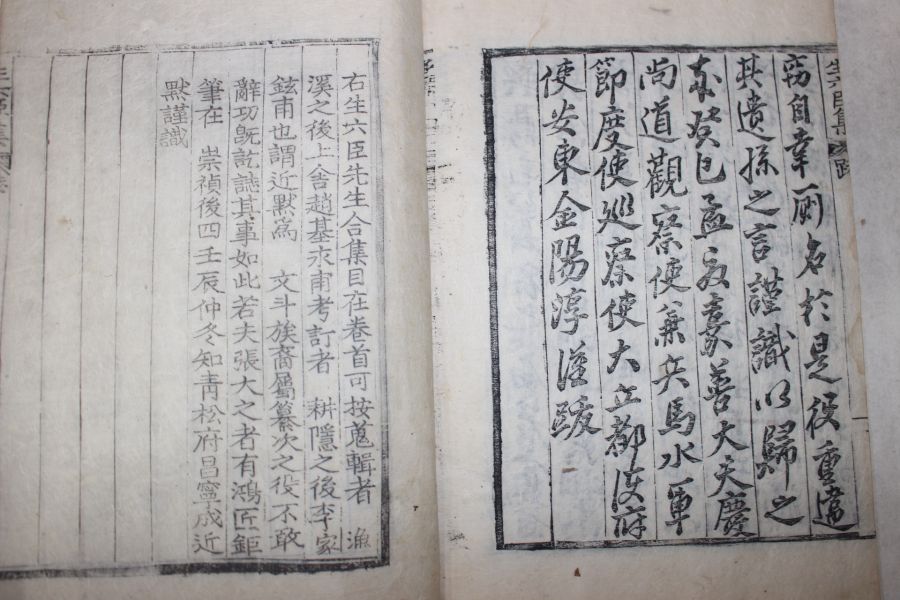 竊自幸厠名於是役重違
其遺孫之言謹識以歸之
癸巳孟夏嘉善大夫慶
尚道觀察使兼兵馬水軍
節度使巡察使大丘都護府
使安東金陽淳謹跋
生六臣集 跋
右生六臣先生合集目在卷首可按蒐輯者 漁
溪之後上舍趙基永甫考訂者 耕隱之後李家
鉉甫也謂近默爲 文斗族裔屬纂次之役不敢
辭功旣訖誌其事如此若夫張大之者有鴻匠鉅
筆在 崇禎後四壬辰仲冬知青松府昌寧成近
默謹識